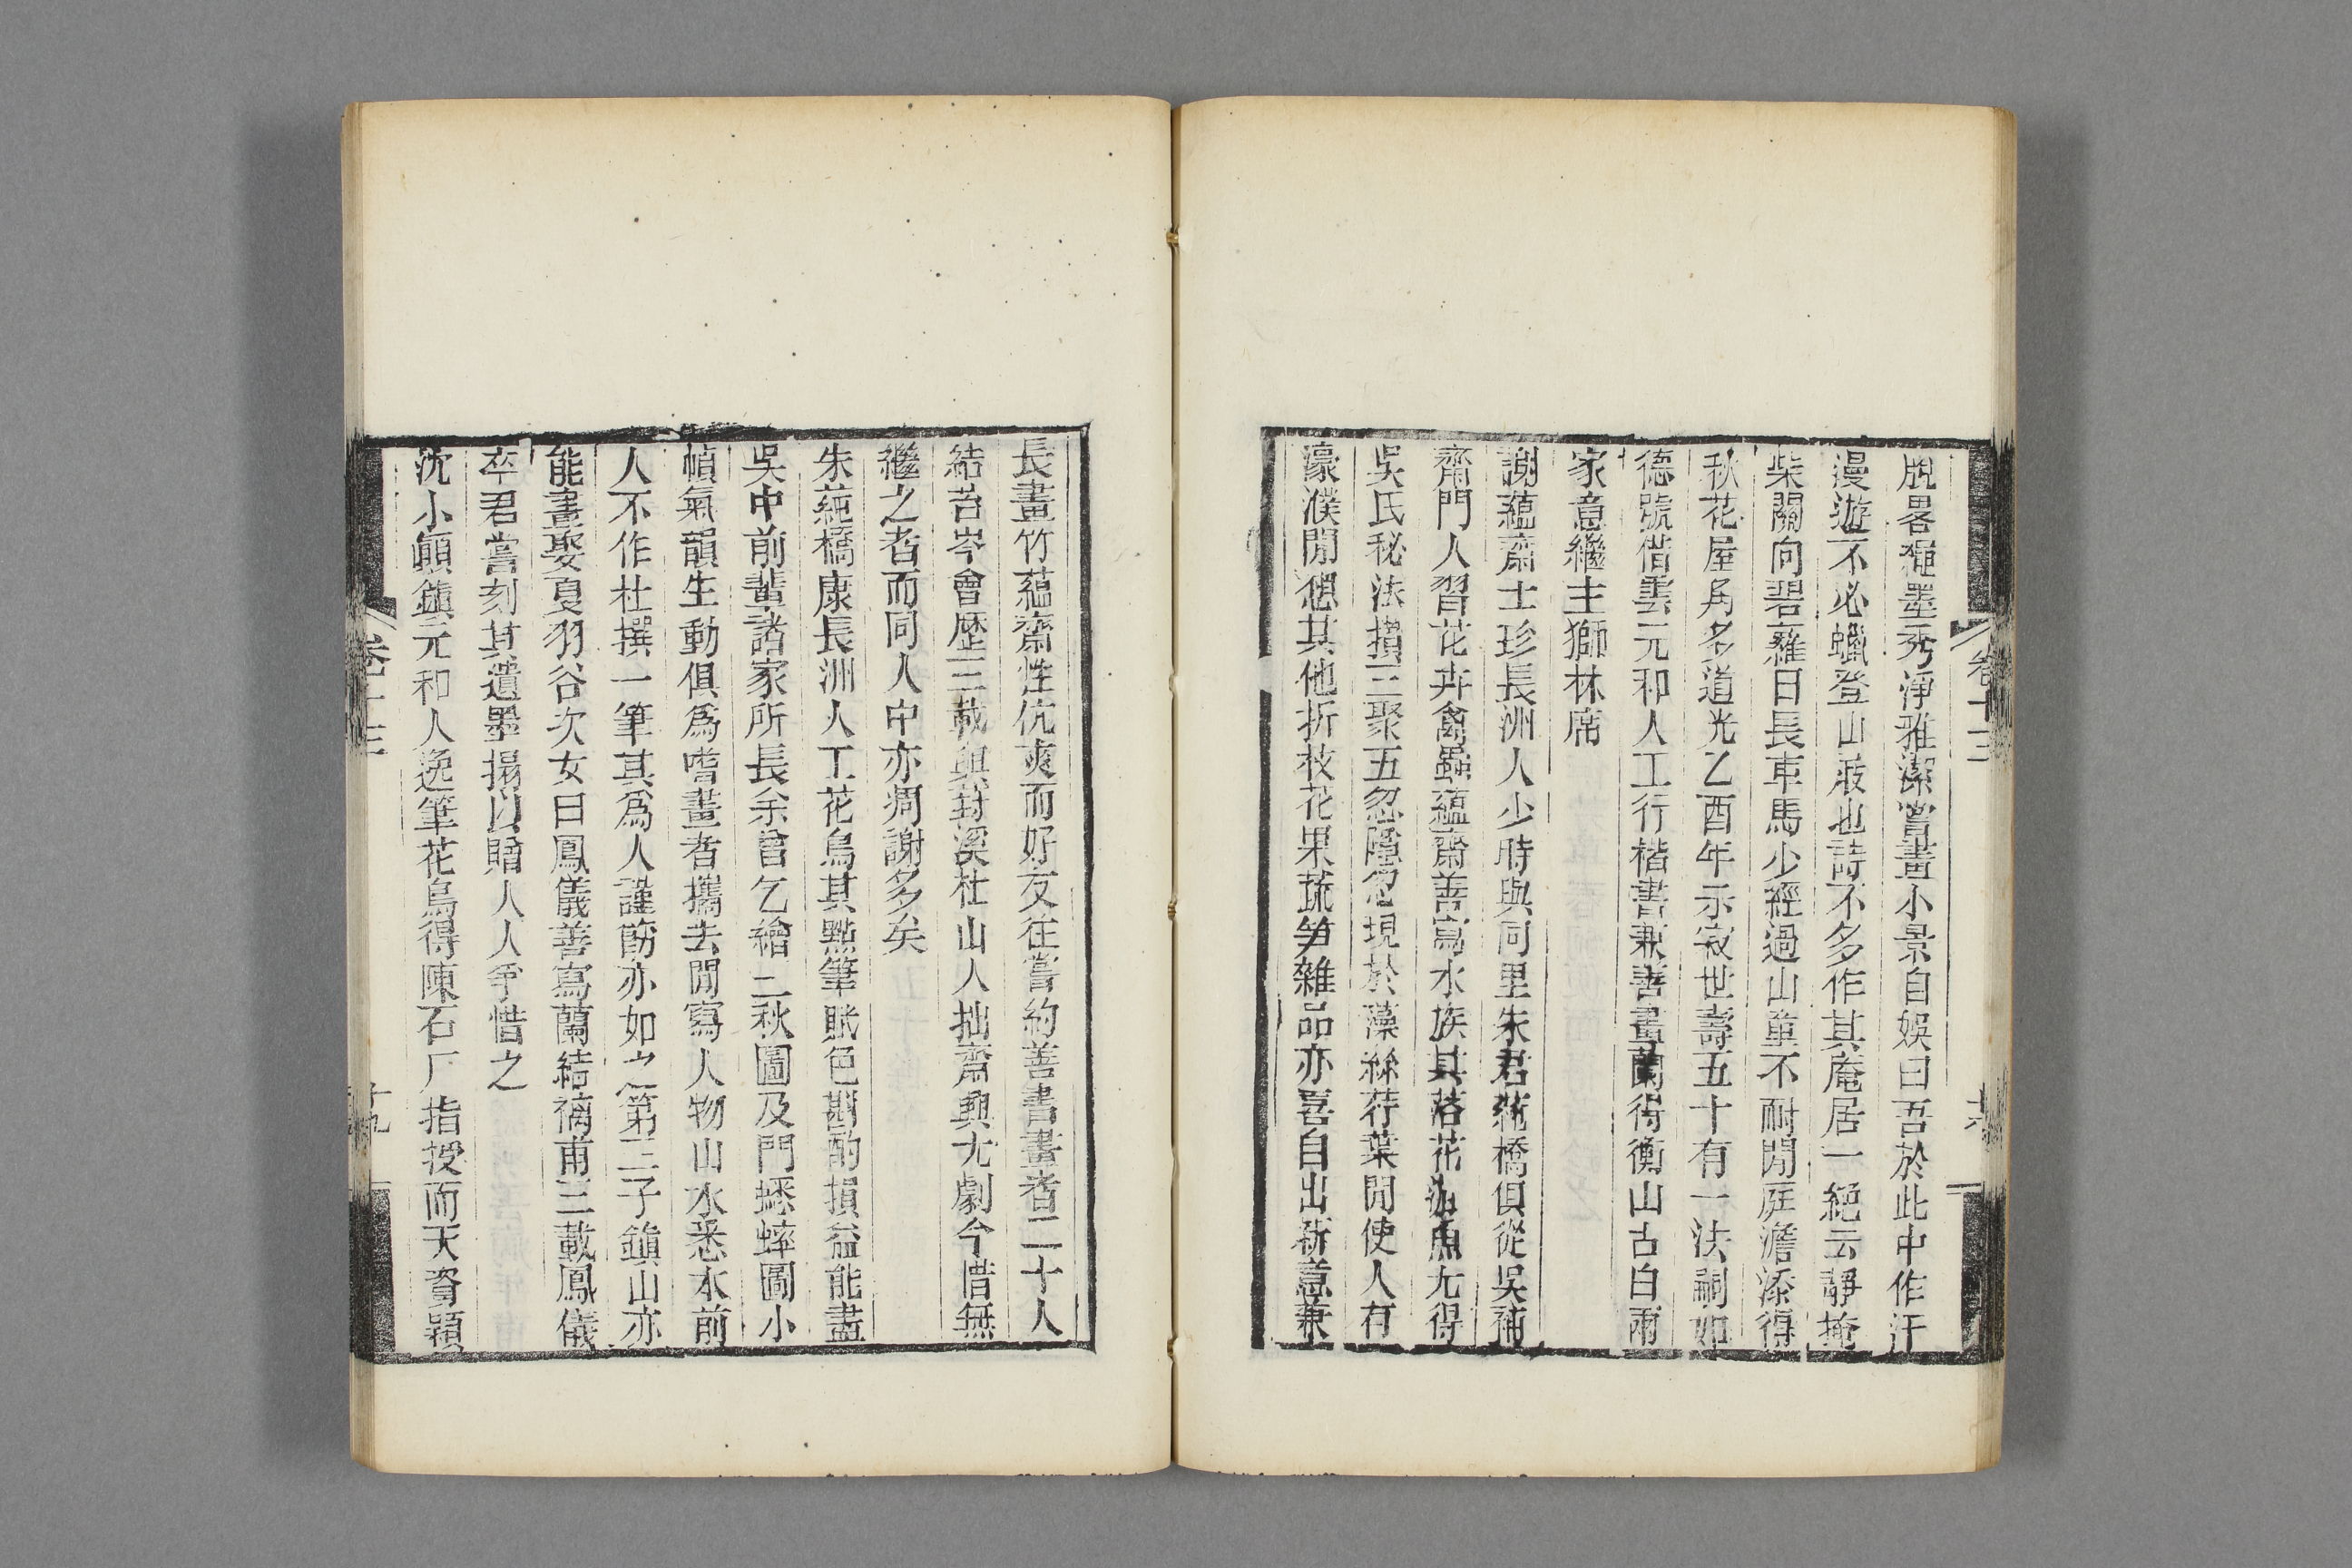 脫畧繩墨秀淨雅潔嘗畫小景自娛曰吾於此中作汗
漫遊不必蠟登山屐也詩不多作其庵居一絕云靜掩
柴關向碧蘿日長車馬少經過山童不耐閒庭澹添得
秋花屋角多道光乙酉年示寂世壽五十有一法嗣如
德號借雲元和人工行楷書兼善畫蘭得衡山古白兩
家意繼主獅林席
謝蘊齋士珍長洲人少時與同里朱君蒓橋俱從吳補
齋門人習花卉禽蟲蘊齋善寫水族其落花游魚尤得
吳氏秘法攢三聚五忽隱忽現於藻絲荇葉閒使人有
濠濮閒想其他折枝花果蔬笋雜品亦喜自出新意兼
卷十三
長畫竹蘊齋性伉爽而好友往嘗約善書畫者二十人
結苔岑會歴三載與葑溪杜山人拙齋興尤劇今惜無
繼之者而同人中亦凋謝多矣
朱蒓橋康長洲人工花鳥其點筆眂色斟酌損益能盡
吳中前輩諸家所長余曾乞繪二秋圖及門蟋蟀圖小
幀氣韻生動俱爲嗜畫者攜去閒寫人物山水悉本前
人不作杜撰一筆其爲人謹飭亦如之第三子鎮山亦
能畫娶夏羽谷次女曰鳳儀善寫蘭結褵甫三載鳳儀
卒君嘗刻其遺墨搨以贈人人爭惜之
沈小顚鎮元和人逸筆花鳥得陳石厂指授而天資穎
卷十三
十九